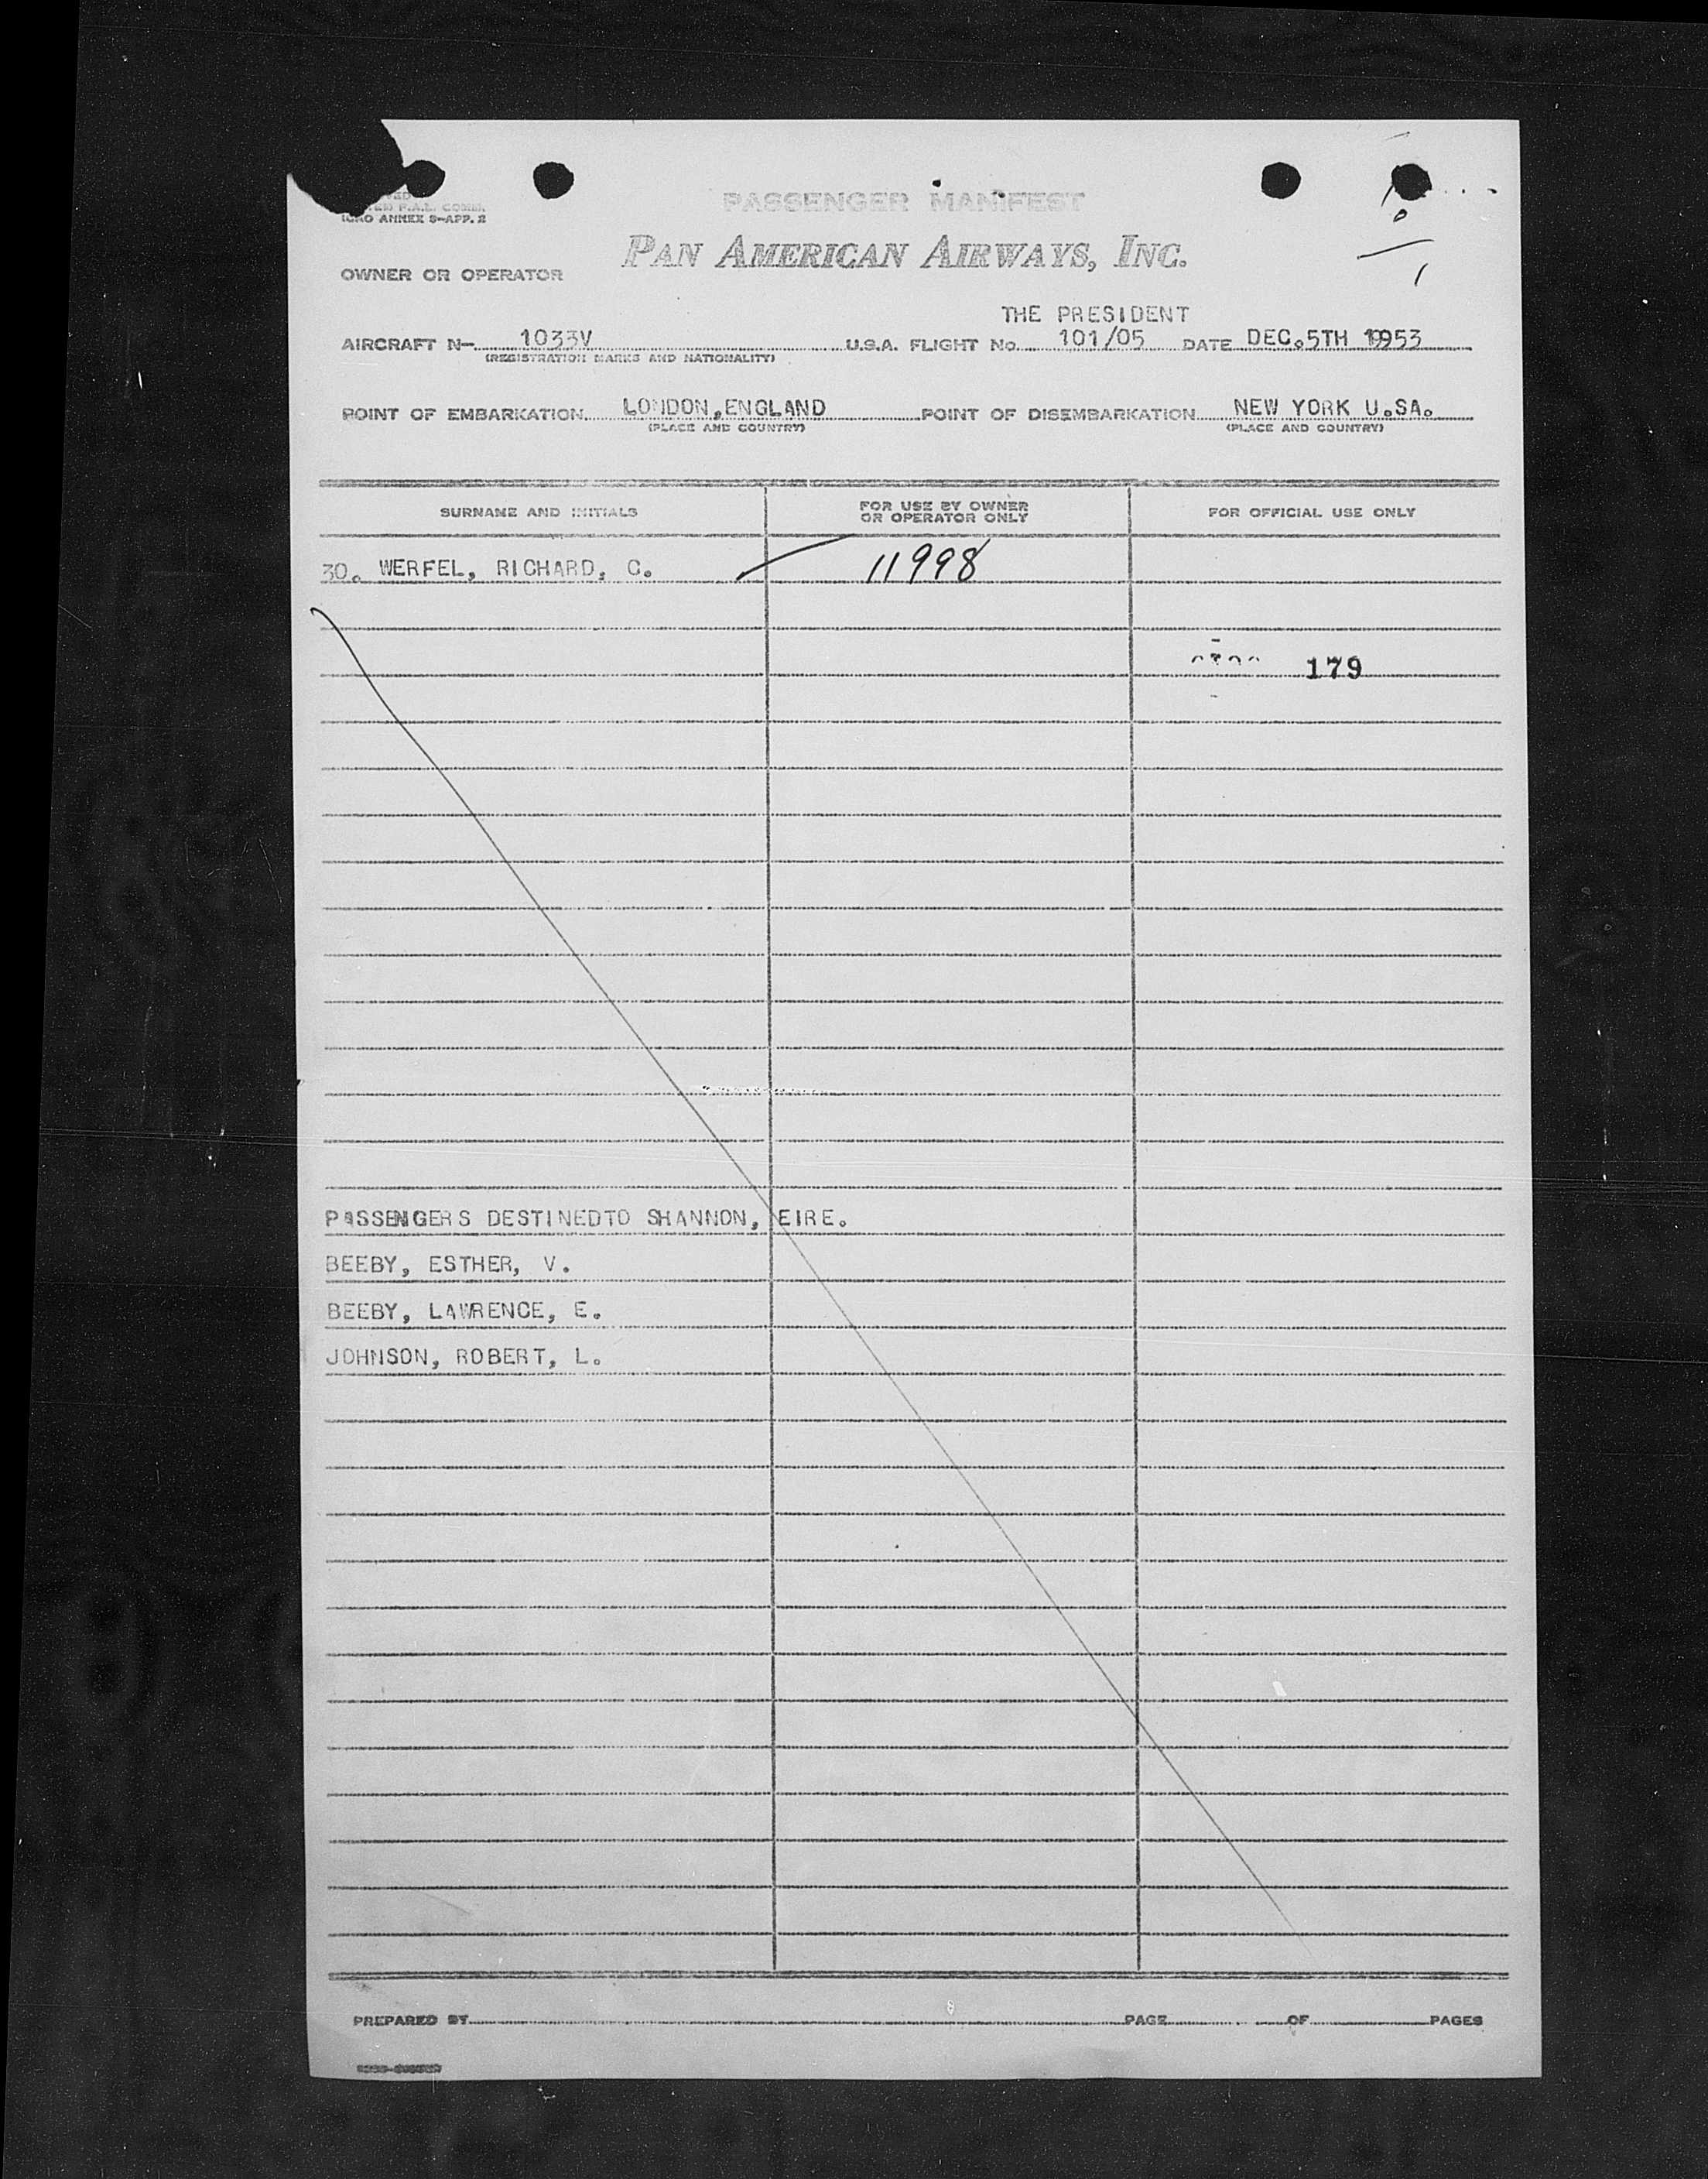 ICAO ANNEX 9-APP. 2
PASSENGER MANIFEST
PAN AMERICAN AIRWAYS, INC.
OWNER OR OPERATOR
THE PRESIDENT
AIRCRAFT N- 1033V U.S.A. FLIGHT No. 101/05 DATE DEC.5TH 1953
(REGISTRATION MARKS AND NATIONALITY)
POINT OF EMBARKATION LONDON,ENGLAND POINT OF DISEMBARKATION NEW YORK U.SA.
(PLACE AND COUNTRY) (PLACE AND COUNTRY)
SURNAME AND INITIALS FOR USE BY OWNER OR OPERATOR ONLY FOR OFFICIAL USE ONLY
30. WERFEL, RICHARD, C. 11998
179
PASSENGERS DESTINEDTO SHANNON, EIRE.
BEEBY, ESTHER, V.
BEEBY, LAWRENCE, E.
JOHNSON, ROBERT, L.
PREPARED BY PAGE OF PAGES